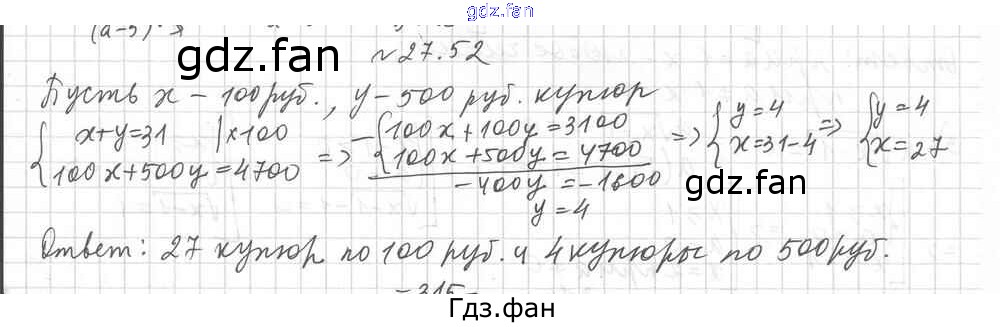 gdz.fan
(a-5)
gdz.fan
№27.52
Пусть x – 100 руб., y – 500 руб. купюр
{ x+y=31 |×100
100x+500y=4700 => – { 100x+100y=3100
100x+500y=4700 => { y=4
x=31-4 => { y=4
x=27
-400y=-1600
y=4
gdz.fan
Ответ: 27 купюр по 100 руб. и 4 купюры по 500 руб.
-315-
Гдз.фан